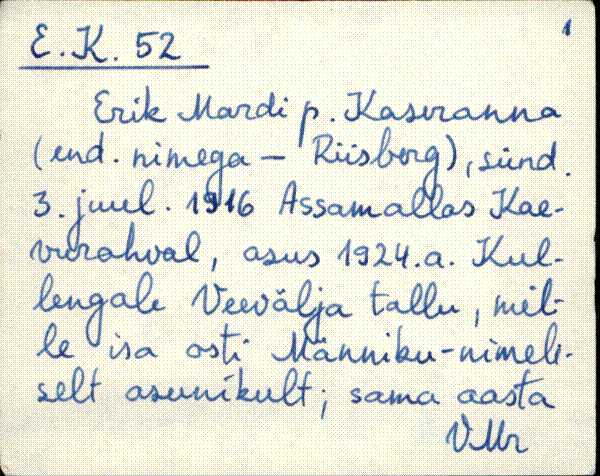 1
E. K. 52
Erik Mardi p. Kaseranna
(end. nimega - Riisberg), sünd.
3. juul. 1916 Assamallas Kae-
vurahval, asus 1924.a. Kul-
lengale Veevälja tallu, mil-
le isa osti Männiku-nimeli-
selt asunikult; sama aasta
VMr